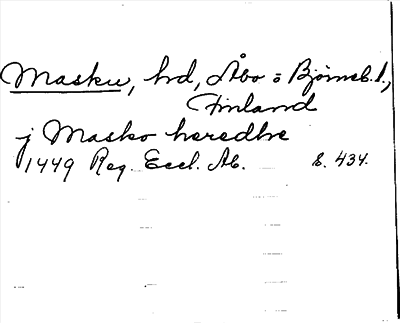 Masku, hd, Åbo o Bjørneb. l.,
Finland
j Masko heredhe
1449 Reg. Eccl. Ab. S. 434.